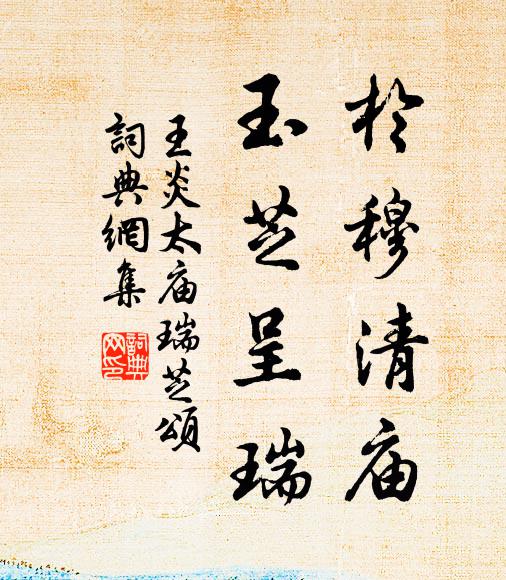 於穆清庙
玉芝呈瑞
王炎太庙瑞芝頌
詞典網集
詞典网印